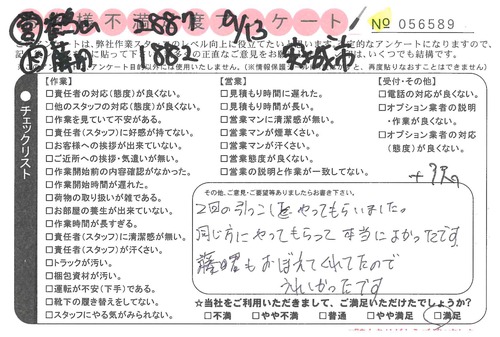 お客様不満足度アンケート
No 056589
9/13
1887
1882
安城市
チェックリスト
【作業】
□責任者の対応(態度)が良くない。
□他のスタッフの対応(態度)が良くない。
□作業を見ていて不安がある。
□責任者(スタッフ)に好感が持てない。
□お客様への挨拶が出来ていない。
□ご近所への挨拶・気遣いが無い。
□作業開始前の内容確認がなかった。
□作業開始時間が遅れた。
□荷物の取り扱いが雑である。
□お部屋の養生が出来ていない。
□作業時間が長すぎる。
□責任者(スタッフ)に清潔感が無い。
□責任者(スタッフ)が汗くさい。
□トラックが汚い。
□梱包資材が汚い。
□運転が不安(下手)である。
□靴下の履き替えをしてない。
□スタッフにやる気がみられない。
【営業】
□見積もり時間に遅れた。
□見積もり時間が長い。
□営業マンに清潔感が無い。
□営業マンが煙草くさい。
□営業マンが汗くさい。
□営業態度が良くない。
□営業の説明と作業が一致してない。
【受付・その他】
□電話の対応が良くない。
□オプション業者の説明・作業が良くない。
□オプション業者の対応(態度)が良くない。
その他、ご意見・ご要望等ありましたらお書き下さい。
2回の引っこしをやってもらいました。
同じ方にやってもらって本当によかったです。
もおぼえてくれてたので
うれしかったです
☆当社をご利用いただきまして、ご満足いただけたでしょうか?
□不満 □やや不満 □普通 □やや満足 □満足